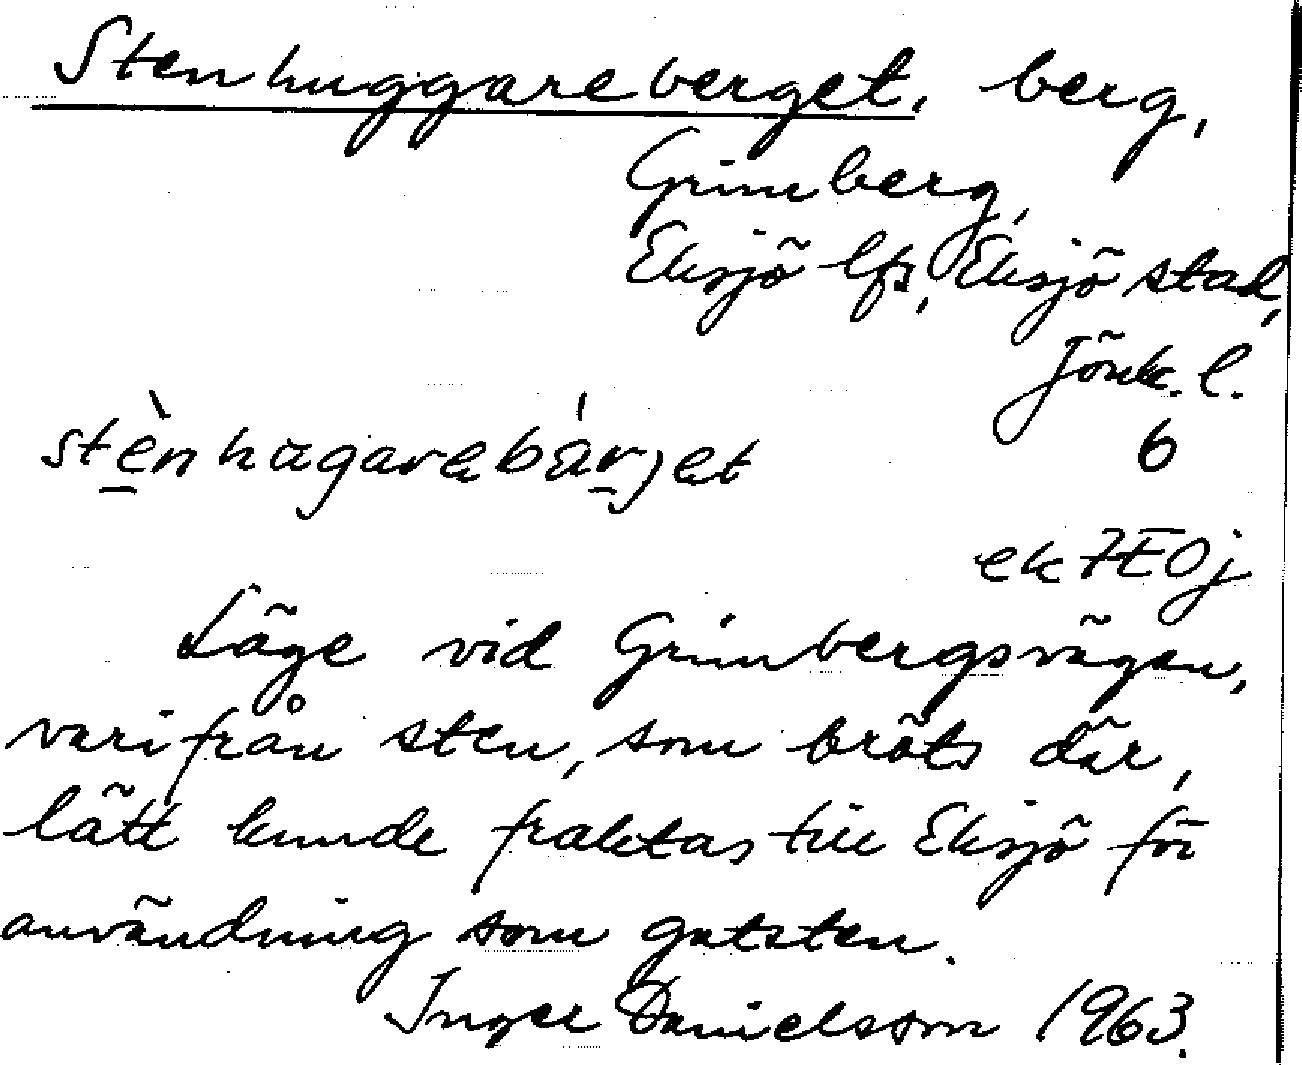 Stenhuggareberget, berg,
Grimberg,
Eksjö lfs, Eksjö stad,
Jönk. l.
stènhagarebárjet
6
ek 7E0j
Läge vid Grimbergsvägen,
varifrån sten, som bröts där,
lätt kunde fraktas till Eksjö för
användning som gatsten.
Inger Danielsson 1963.